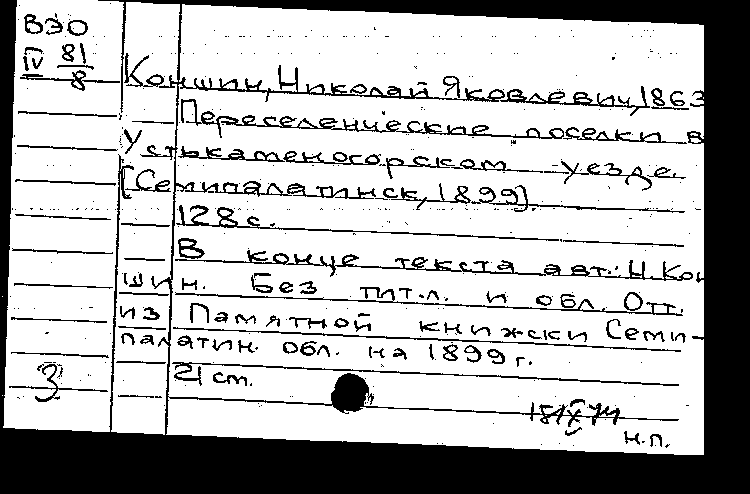 ВЭО
IV 81/8
Коншин, Николай Яковлевич, 1863
Переселенческие поселки в
Устькаменогорском уезде.
[Семипалатинск, 1899].
128 с.
В конце текста авт.: Н. Кон
шин. Без тит. л. и обл. Отт.
из Памятной книжки Семи-
палатин. обл. на 1899 г.
21 ст.
3
н.п.